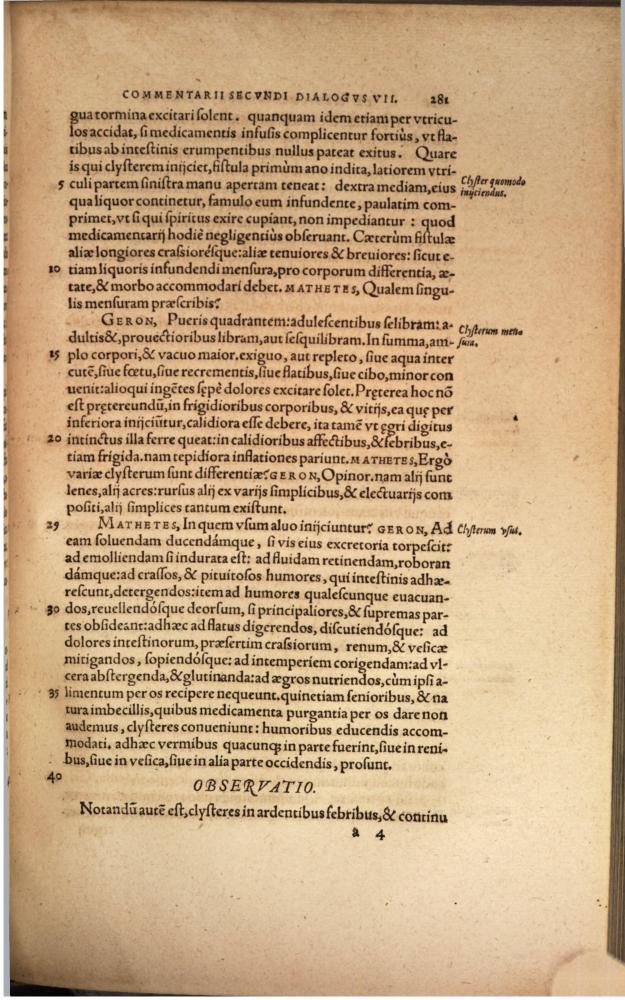 COMMENTARII SECVNDI DIALOGVS VII. 281
gua tormina excitari solent. quanquam idem etiam per vtricu-
los accidat, si medicamentis infusis complicentur fortiùs, vt fla-
tibus ab intestinis erumpentibus nullus pateat exitus. Quare
is qui clysterem inijciet, fistula primùm ano indita, latiorem vtri-
5 culi partem sinistra manu apertam teneat: dextra mediam, eius
Clyster quomodo
inijciendus.
qua liquor continetur, famulo eum infundente, paulatim com-
primet, vt si qui spiritus exire cupiant, non impediantur: quod
medicamentarij hodiè negligentiùs obseruant. Cæterùm fistulæ
aliæ longiores crassiorésque: aliæ tenuiores & breuiores: sicut e-
10 tiam liquoris infundendi mensura, pro corporum differentia, æ-
tate, & morbo accommodari debet. MATHETES, Qualem singu-
lis mensuram præscribis?
GERON, Pueris quadrantem: adulescentibus selibram: a-
dultis &, prouectioribus libram, aut sesquilibram. In summa, am-
Clysterum men-
sura.
15 plo corpori, & vacuo maior. exiguo, aut repleto, siue aqua inter
cutē, siue fœtu, siue recrementis, siue flatibus, siue cibo, minor con
uenit: alioqui ingētes sępè dolores excitare solet. Pręterea hoc nō
est prętereundū, in frigidioribus corporibus, & vitijs, ea quę per
inferiora inijciūtur, calidiora esse debere, ita tamē vt ęgri digitus
20 intinctus illa ferre queat: in calidioribus affectibus, & febribus, e-
tiam frigida. nam tepidiora inflationes pariunt. MATHETES, Ergò
variæ clysterum sunt differentiæ? GERON, Opinor. nam alij sunt
lenes, alij acres: rursus alij ex varijs simplicibus, & electuarijs com
positi, alij simplices tantum existunt.
25 MATHETES, In quem vsum aluo inijciuntur? GERON, Ad
Clysterum vsus.
eam soluendam ducendámque, si vis eius excretoria torpescit:
ad emolliendam si indurata est: ad fluidam retinendam, roboran
dámque: ad crassos, & pituitosos humores, qui intestinis adhæ-
rescunt, detergendos: item ad humores qualescunque euacuan-
30 dos, reuellendósque deorsum, si principaliores, & supremas par-
tes obsideant: adhæc ad flatus digerendos, discutiendósque: ad
dolores intestinorum, præsertim crassiorum, renum, & vesicæ
mitigandos, sopiendósque: ad intemperiem corigendam: ad vl-
cera abstergenda, & glutinanda: ad ægros nutriendos, cùm ipsi a-
35 limentum per os recipere nequeunt. quinetiam senioribus, & na
tura imbecillis, quibus medicamenta purgantia per os dare non
audemus, clysteres conueniunt: humoribus educendis accom-
modati. adhæc vermibus quacunq; in parte fuerint, siue in reni-
bus, siue in vesica, siue in alia parte occidendis, prosunt.
40
OBSERVATIO.
Notandū autē est, clysteres in ardentibus febribus, & continu
a 4